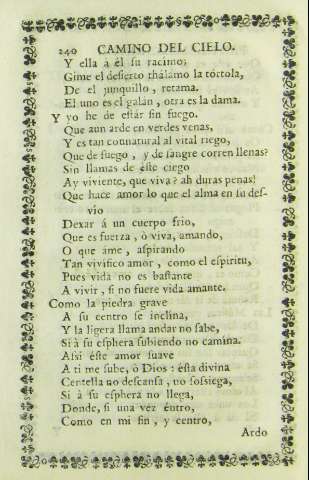 240 CAMINO DEL CIELO.
Y ella à él su racimo;
Gime el desierto thálamo la tórtola,
De el junquillo, retama.
El uno es el galán, otra es la dama.
Y yo he de estár sin fuego.
Que aun arde en verdes venas,
Y es tan connatural al vital riego,
Que de fuego, y de sangre corren llenas?
Sin llamas de éste ciego
Ay viviente, que viva? ah duras penas!
Que hace amor lo que el alma en su des-
vio
Dexar á un cuerpo frio,
Que es fuerza, ò viva, amando,
O que áme, aspirando
Tan vivifico amor, como el espiritu,
Pues vida no es bastante
A vivir, si no fuere vida amante.
Como la piedra grave
A su centro se inclina,
Y la ligera llama andar no sabe,
Si à su esphera subiendo no camina.
Assi éste amor suave
A ti me sube, ò Dios: ésta divina
Centella no descansa, no sossiega,
Si à su esphera no llega,
Donde, si una vez éntro,
Como en mi fin, y centro,
Ardo